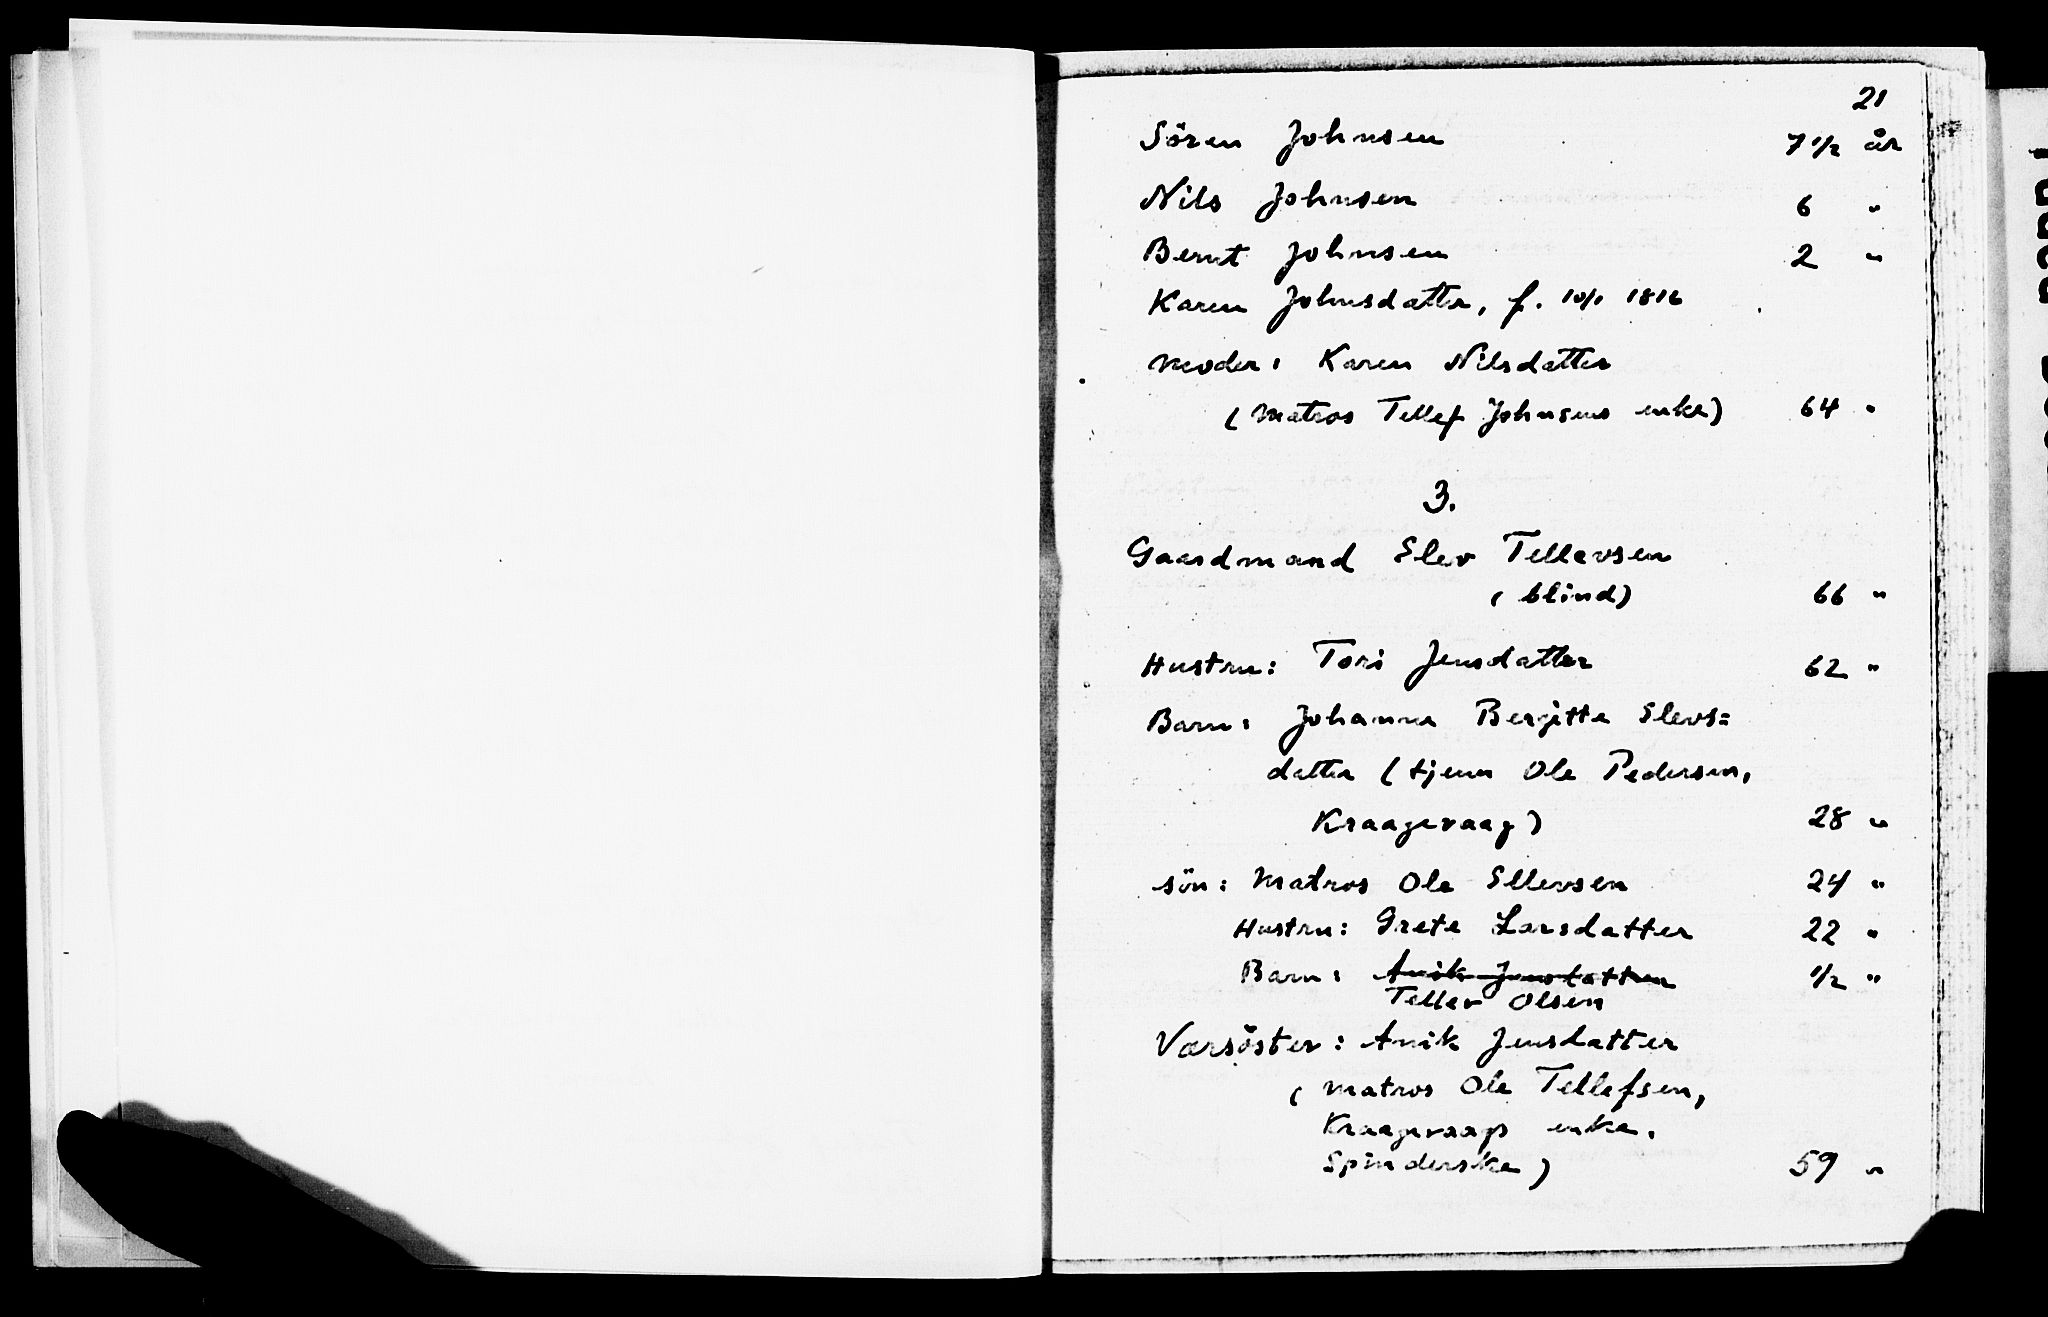 21
Sören Johnsen 7 1/2 år
Nils Johnsen 6 "
Bernt Johnsen 2 "
Karen Johnsdatter, f. 10/1 1816
Moder: Karen Nilsdatter
(Matros Tellef Johnsens enke) 64 "
3.
Gaardmand Elev Tellevsen
(blind) 66 "
Hustru: Tori Jensdatter 62 "
Barn: Johanna Bergitte Elevs=
datter (tjener Ole Pedersen,
Kraagevaag) 28 "
sön: Matros Ole Ellevsen 24 "
Hustru: Grete Larsdatter 22 "
Barn: Anik Jensdatter 1/2 "
Tellev Olsen
Værsöster: Anik Jensdatter
(Matros Ole Tellefsen,
Kraagevaags enke.
Spinderske) 59 "